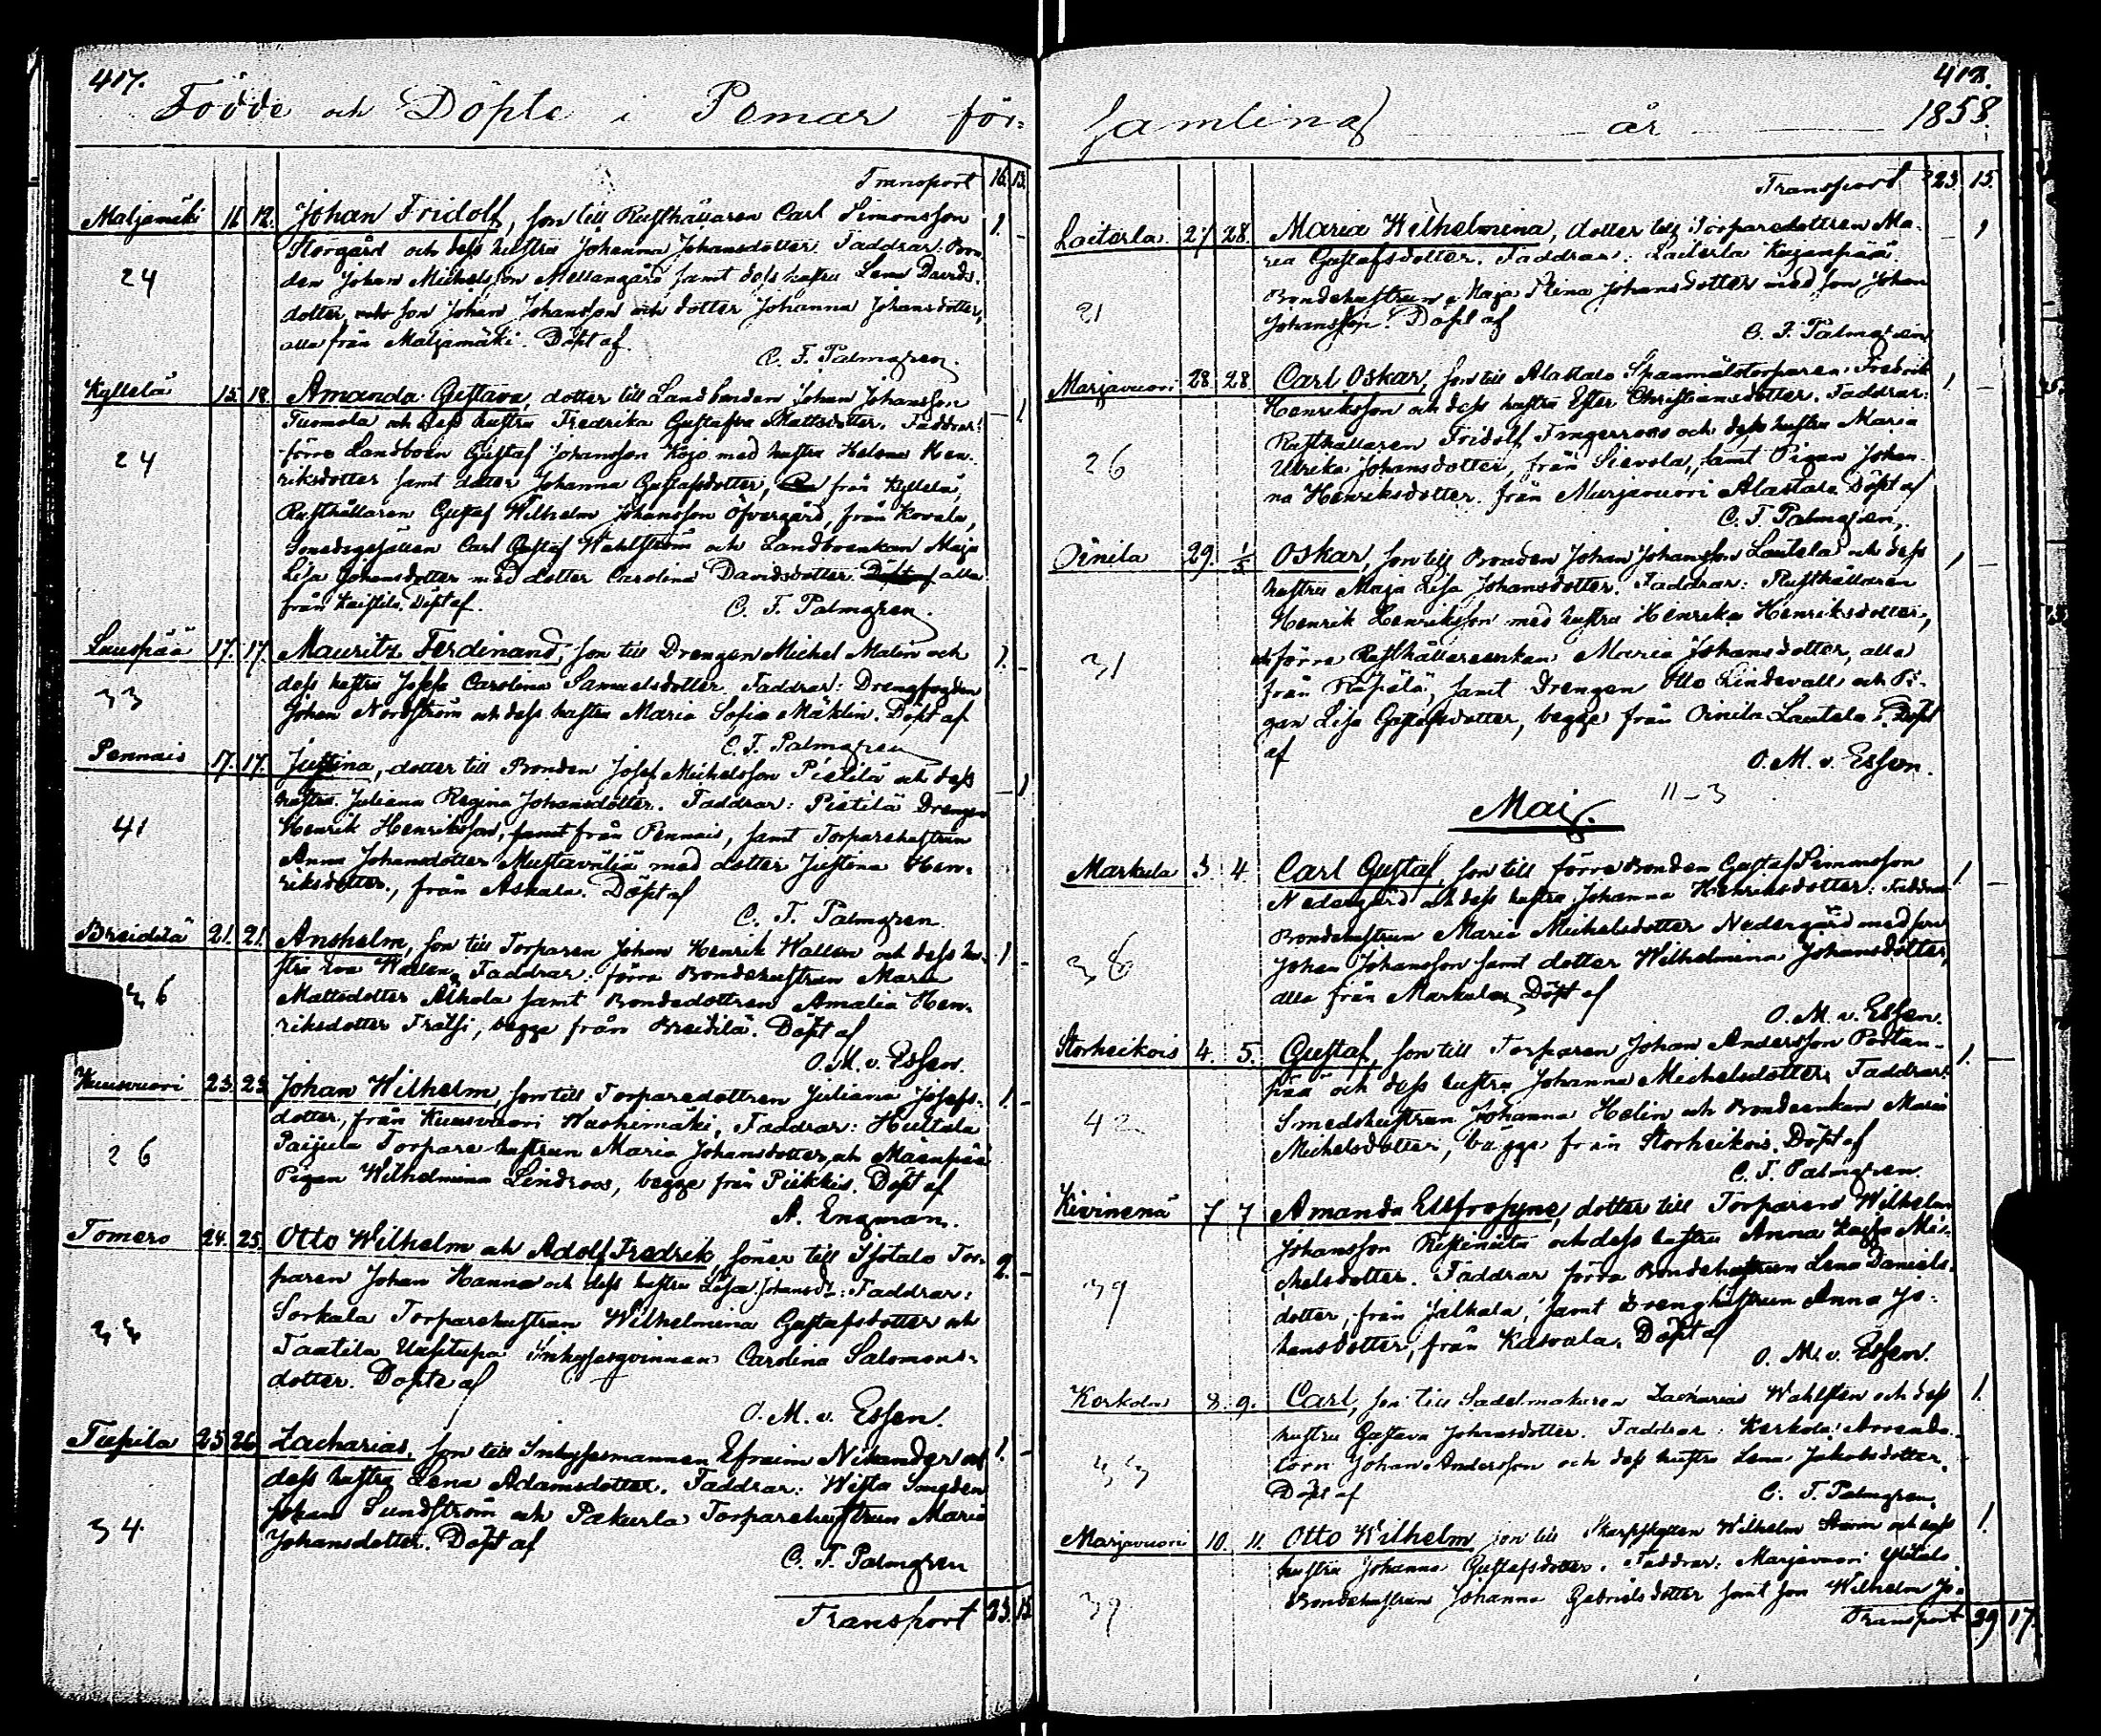 417.
Födde och Döpte i Pemar för-
Transport 16. 13.
Maljamäki 11. 12. Johan Fridolf, son till Rusthållaren Carl Simonsson 1. -
Storgård och dess hustru Johanna Johansdotter. Faddrar: Bon-
24 den Johan Michelsson Mellangård samt dess hustru Lena Davids-
dotter, son Johan Johansson och dotter Johanna Johansdotter,
alla från Maljamäki. Döpt af
C. F. Palmgren.
Kyllelä 15. 18. Amanda Gustava, dotter till Landbonden Johan Johansson - 1
Tuomola och dess hustru Fredrika Gustafva Mattsdotter. Faddrar:
24 förre Landboen Gustaf Johansson Kojo med hustru Helena Hen-
riksdotter samt dotter Johanna Gustafsdotter, från Kyllelä,
Rusthållaren Gustaf Wilhelm Johansson Öfvergård, från Kovala,
Carl Gustaf Wahlström och Landboenkan Maja
Lisa Johansdotter med dotter Carolina Davidsdotter alla
från Döpt af
C. F. Palmgren.
17. 17. Mauritz Ferdinand, son till Drengen Michel Malin och 1. -
33 dess hustru Josefa Carolina Samuelsdotter. Faddrar: Drengfogden
Johan Nordström och dess hustru Maria Sofia Mäklin. Döpt af
C. F. Palmgren
Pennais 17. 17. Justina, dotter till Bonden Josef Michelsson Pietilä och dess - 1
hustru Juliana Regina Johansdotter. Faddrar: Pietilä Drengen
41 Henrik Henriksson, från Pennais, samt Torparehustrun
Anna Johansdotter Mustaväljä med dotter Justina Hen-
riksdotter, från Askala. Döpt af
C. F. Palmgren.
Breidilä 21. 21. Anshelm, son till Torparen Johan Henrik Wallen och dess hu- 1 -
stru Eva Wallen. Faddrar: förra Bondehustrun Maria
36 Mattsdotter Alhola samt Bondedottren Amalia Hen-
riksdotter Trälsi, begge från Breidilä. Döpt af
O. M. v. Essen.
Kuusvuori 23. 23. Johan Wilhelm, son till Torparedottren Juliana Josefs- 1. -
dotter, från Kuusvuori Waohimäki. Faddrar: Huttala
26 Paijula Torpare-hustrun Maria Johansdotter, och Mäenpää
Pigan Wilhelmina Lindroos, begge från Piikkis. Döpt af
A. Engman.
Tomero 24. 25. Otto Wilhelm och Adolf Fredrik, söner till Isotalo Tor- 2. -
paren Johan Hanna och dess hustru Lisa Johansd:. Faddrar:
Sorkala Torparehustrun Wilhelmina Gustafsdotter och
Tantila Uusitupa Inhysesqvinnan Carolina Salomons-
dotter. Döpte af
O. M. v. Essen.
25. 26. Zacharias, son till Inhysesmannen Efraim Nikander och 1. -
dess hustru Lena Adamsdotter. Faddrar: Wista
34 Johan Sundström och Pakurla Torparehustrun Maria
Johansdotter. Döpt af
C. F. Palmgren
Transport 23. 15
418.
samling år 1858.
Transport 23. 15.
Loiterla 27 28. Maria Wilhelmina, dotter till Torparedottren Ma- - 1
ria Gustafsdotter. Faddrar: Loiterla
21 Bondehustrun Maja Stina Johansdotter med son Johan
Johansson. Döpt af
C. F. Palmgren
Marjavuori 28 28 Carl Oskar, son till Alastalo Spanmålstorparen Fredrik 1. -
Henriksson och dess hustru Ester Christiansdotter. Faddrar:
26 Rusthållaren Fridolf Fingerroos och dess hustru Maria
Ulrika Johansdotter, från Sievola, samt Pigan Johan-
na Henriksdotter från Marjavuori Alastalo. Döpt af
C. F. Palmgren.
Oinila 29. 1/5 Oskar, son till Bonden Johan Johansson Lautela och dess 1 -
hustru Maja Lisa Johansdotter. Faddrar: Rusthållaren
Henrik Henriksson med hustru Henrika Henriksdotter,
31 och förra Rusthållareenkan Maria Johansdotter, alla
från samt Drengen Otto Lindevall och Pi-
gan Lisa Gustafsdotter, begge från Oinila Lautela. Döpt
af
O. M. v. Essen.
11-3
Maj.
Markula 3 4 Carl Gustaf, son till förre Bonden Gustaf Simonsson 1. -
Nedergård och dess hustru Johanna Henriksdotter. Faddrar:
Bondehustrun Maria Michelsdotter Nedergård med son
38 Johan Johansson samt dotter Wilhelmina Johansdotter,
alla från Markula. Döpt af
O. M. v. Essen.
Storheikois 4. 5. Gustaf, son till Torparen Johan Andersson Portan- 1. -
pää och dess hustru Johanna Michelsdotter. Faddrar:
42 Smedshustrun Johanna Helin och Bondeenkan Maria
Michelsdotter, bägge från Storheikois. Döpt af
C. F. Palmgren.
Kivinenä 7 7 Amanda Eufrosyne, dotter till Torparen Wilhelm
Johansson och dess hustru Anna Kajsa Mi-
chelsdotter. Faddrar förra Bondehustrun Lena Daniels-
39 dotter, från Jalkala, samt Drenghustrun Anna Jo-
hansdotter, från Kasvala. Döpt af
O. M. v. Essen.
Korkola 8. 9. Carl, son till Sadelmakaren Zacharias Wahlsten och dess 1.
hustru Gustava Johansdotter. Faddrar: Korkola Arrenda-
torn Johan Andersson och dess hustru Lena Jakobsdotter.
33 Döpt af
C. F. Palmgren.
Marjavuori 10. 11. Otto Wilhelm son till Skarpskytten Wilhelm Storm och dess 1.
hustru Johanna Gustafsdotter. Faddrar: Marjavuori Ylitalo
39 Bondehustrun Johanna Gabrielsdotter samt son Wilhelm Jo-
Transport 29 17.